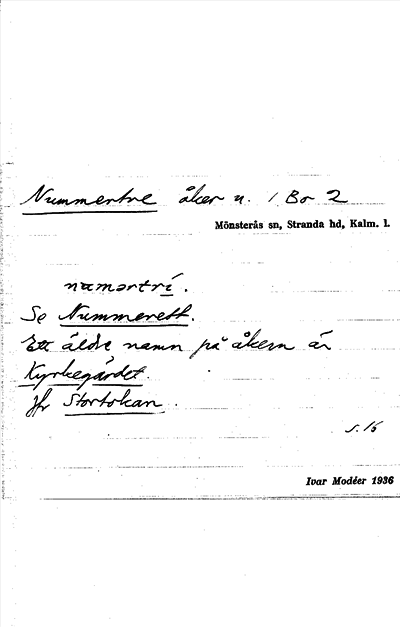 Nummertre åker n. 1 Bo 2
Mönsterås sn, Stranda hd, Kalm. l.
Se Nummerett.
Ett äldre namn på åkern är
Kyrkegärdet.
Jfr Stortokan.
s. 15
Ivar Modéer 1936